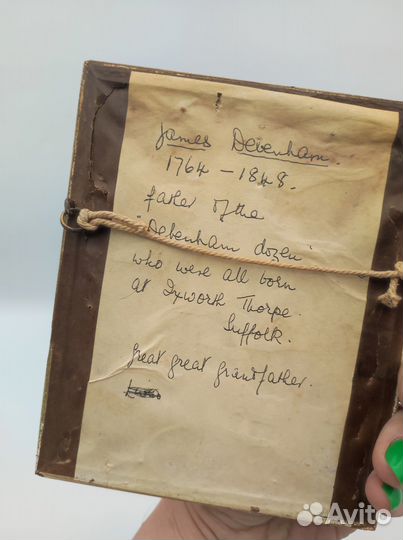 James Debenham.
1764 – 1848.
father of the
"Debenham dozen"
who were all born
at Ixworth Thorpe.
Suffolk.
great great grandfather.
Avito